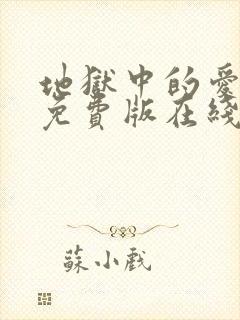 地獄中的愛
免費版在綫
蘇小戲